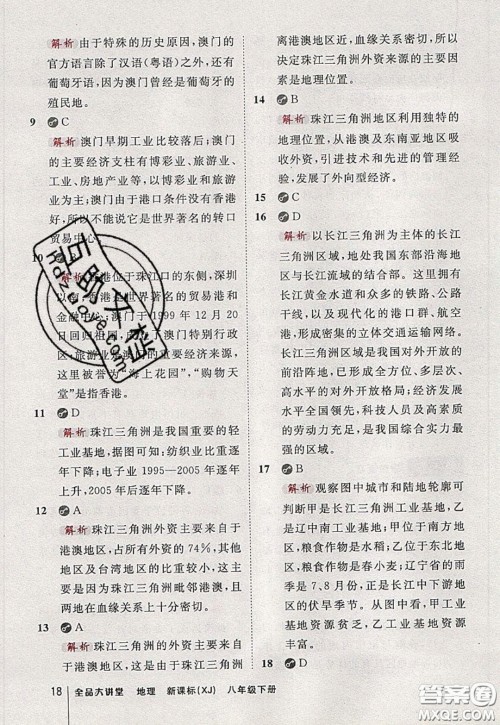 解析 由于特殊的历史原因，澳门的
官方语言除了汉语(粤语)之外，还有
葡萄牙语，因为澳门曾经是葡萄牙的
殖民地。
9 C
解析 澳门早期工业比较落后；澳门
的主要经济支柱有博彩业、旅游业、
工业、房地产业等，以博彩业、旅游业
为主体；澳门由于港口条件没有香港
好，没有成为世界著名的转口
贸易中心。
10 B
香港位于珠江口的东侧，深圳
以南，香港是世界著名的贸易港和
金融中心；澳门于 1999 年 12 月 20
日回归祖国，澳门特别行政
区，旅游业是澳门的重要经济来源，
这里被誉为“海上花园”，“购物天
堂”是指香港。
11 D
解析 珠江三角洲是我国重要的轻
工业基地，据图可知：纺织业比重先
增后降；电子业 1995—2005 年逐年
上升，2005 年后逐年下降。
12 A
解析 珠江三角洲外资主要来自于
港澳地区，占所有外资的 74%，其次
为欧美以及台湾地区的比重也较
高，这是因为珠江三角洲毗邻港澳，
且两地在血缘关系上十分密切。
13 A
解析 珠江三角洲的外资主要来自
于港澳地区，这是因为珠江三角洲
离港澳地区近，血缘关系密切，所以
决定珠江三角洲外资来源的主要因
素是地理位置。
14 B
解析 珠江三角洲地区利用独特的
地理位置，从港澳及东南亚地区吸
收外资，引进技术和先进的管理经
验，发展了外向型经济。
15 C
16 D
解析 以长江三角洲为主体的长江
三角洲区域，地处我国东部沿海地
区与长江流域的结合部。这里拥有
长江黄金水道和众多的铁路、公路
干线，以及现代化的港口群、航空
港，形成密集的立体交通运输网络。
长江三角洲区域是我国对外开放的
前沿阵地，已形成多层次、宽领域、
高水平的对外开放格局；经济发展
全国领先，科技人员和高素质
的劳动力充足，是我国综合实力最
强的区域。
17 B
解析 观察图中城市和陆地轮廓可
判断甲是长江三角洲工业基地，
乙是辽中南工业基地；甲位于南方地
区，粮食作物是水稻，乙位于北方地
区，粮食作物是春小麦；辽宁省的雨
季是 7、8 月份，6 月是长江中下游地
区的伏旱季节。乙工业基地矿产
资源丰富，甲工业基地资源贫乏，
18 全品大讲堂 地理 新课标(XJ) 八年级下册
百晓文档